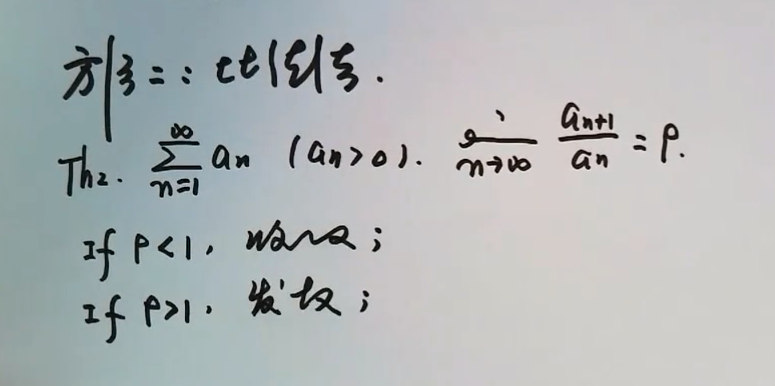 方法二:比值法.
Th2. ∑_{n=1}^{∞} a_n (a_n>0). lim_{n→∞} a_{n+1}/a_n = ρ.
If ρ<1, 收敛;
If ρ>1, 发散;